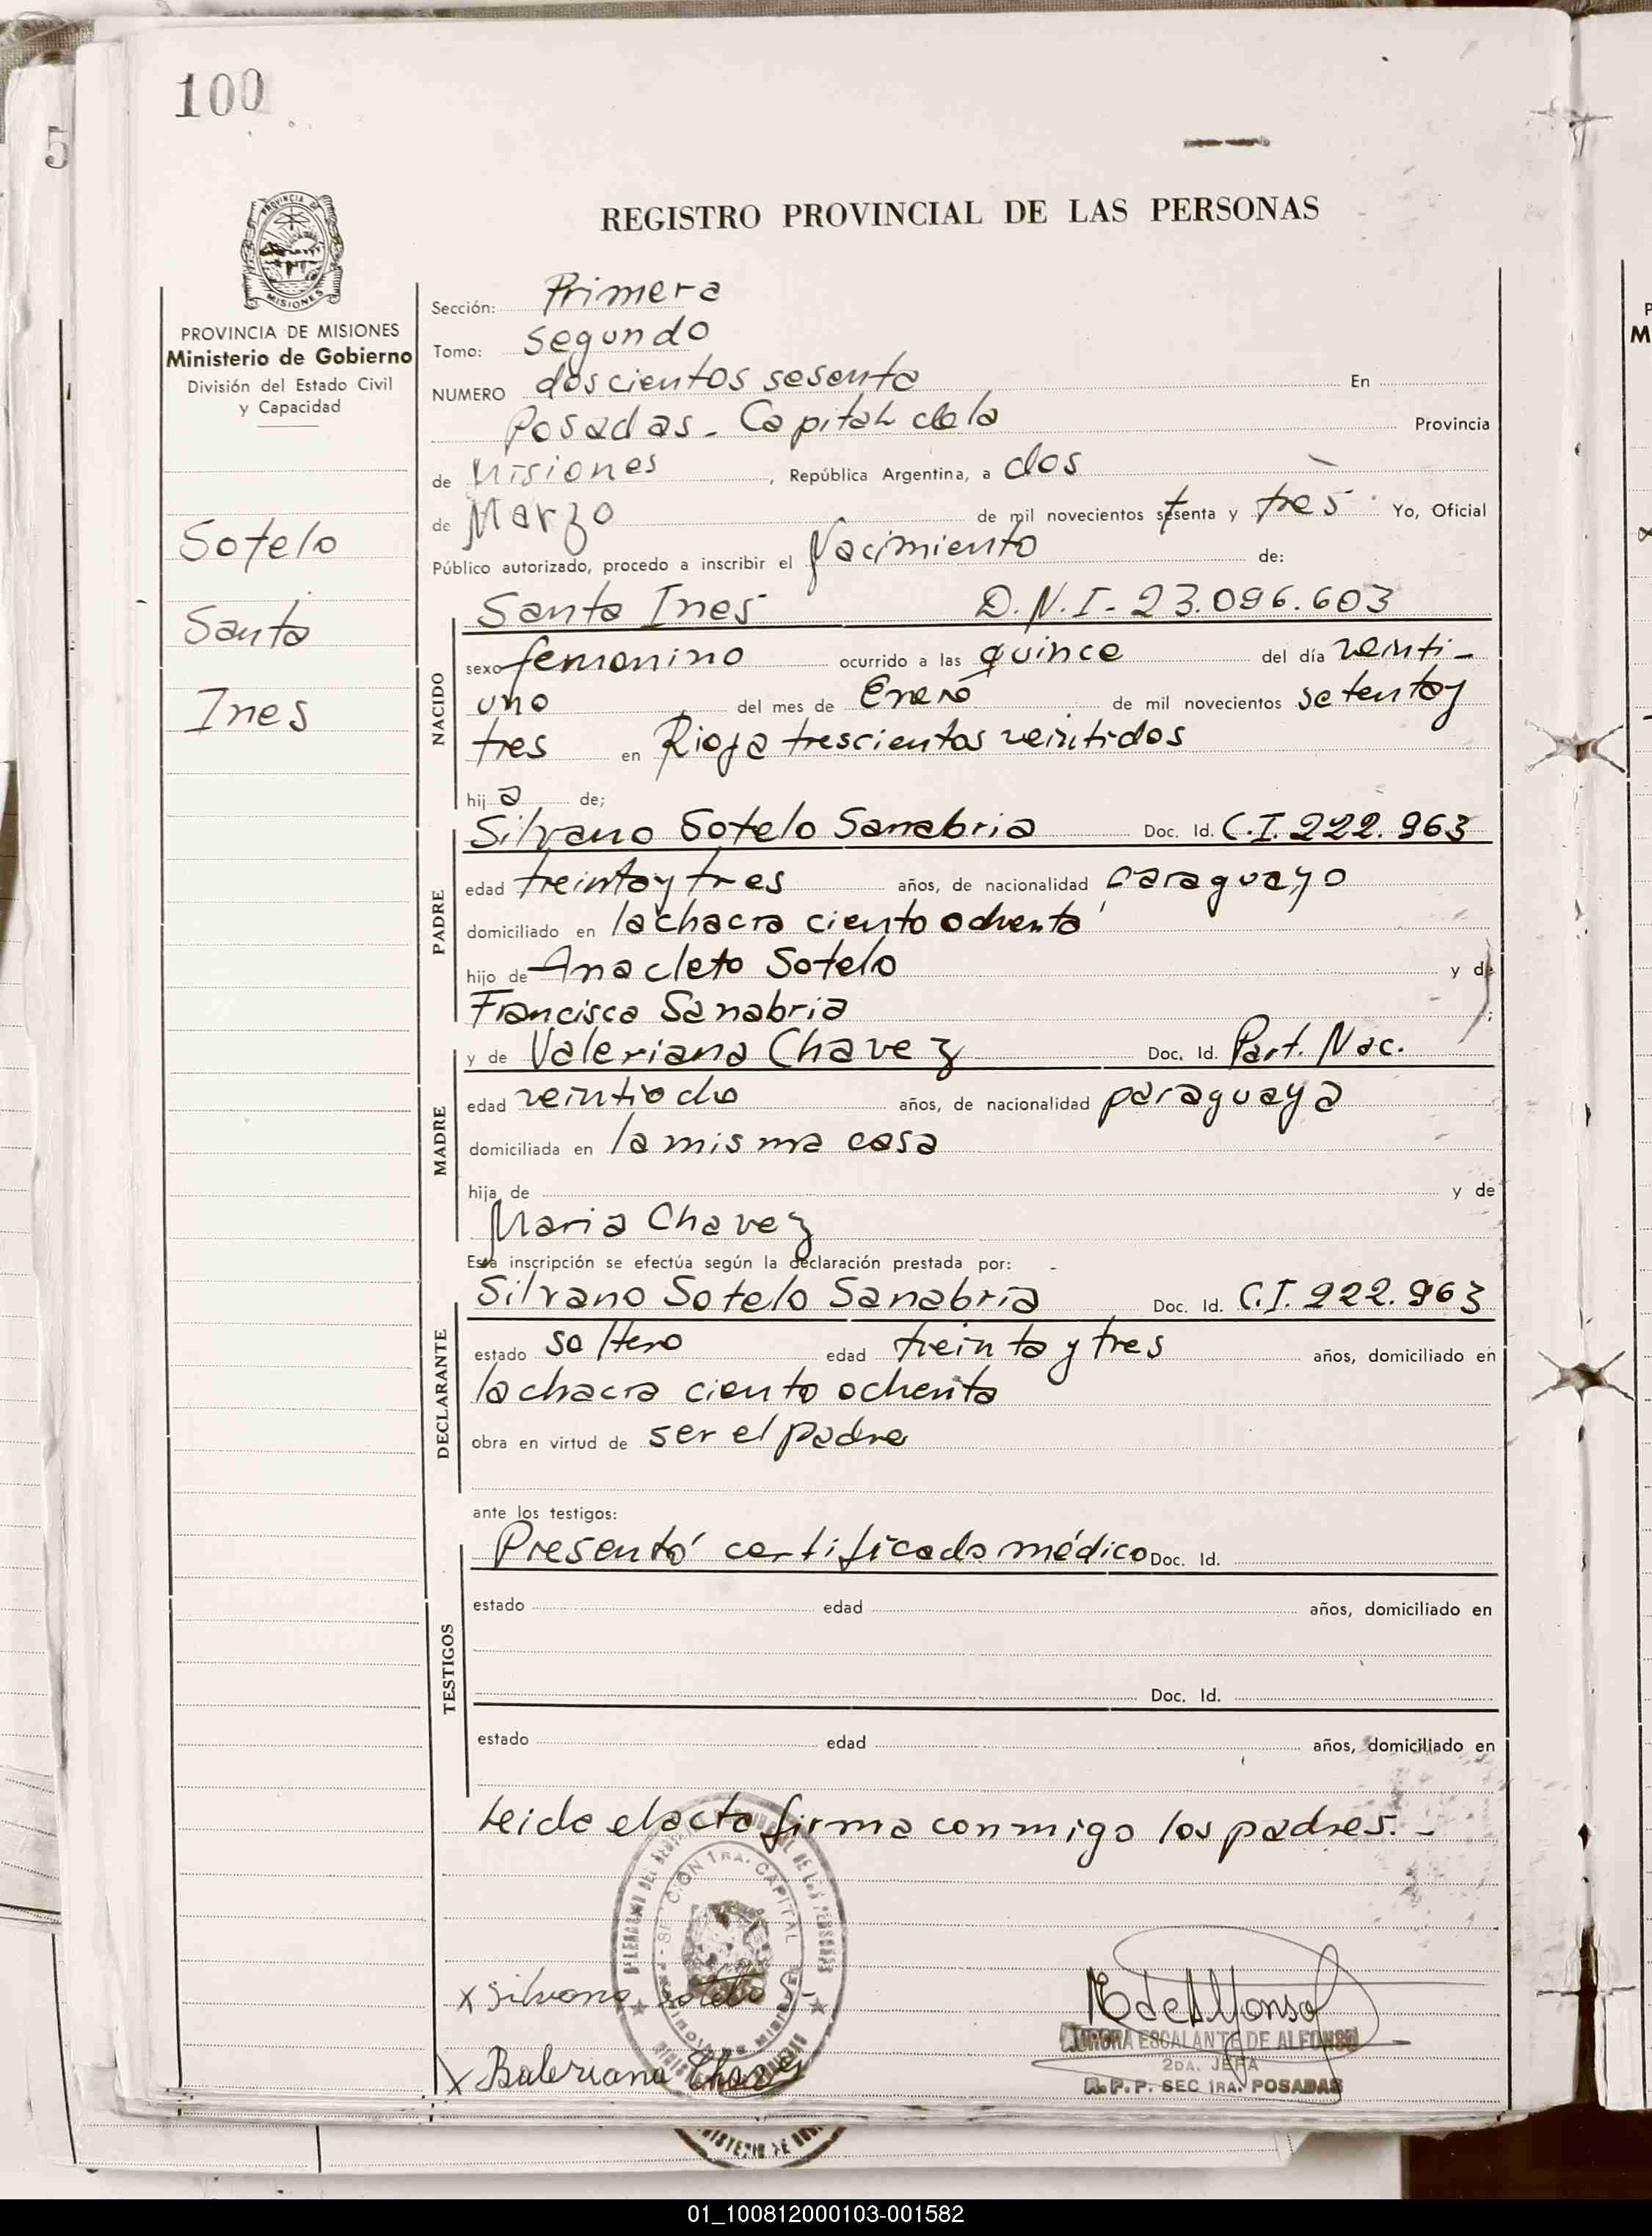 100
5
REGISTRO PROVINCIAL DE LAS PERSONAS
MISIONES
PROVINCIA DE MISIONES
Ministerio de Gobierno
División del Estado Civil
y Capacidad
Sotelo
Santa
Ines
Sección: Primera
Tomo: Segundo
NUMERO doscientos sesenta En
Posadas - Capital de la Provincia
de Misiones, República Argentina, a dos
de Marzo de mil novecientos setenta y tres Yo, Oficial
Público autorizado, procedo a inscribir el Nacimiento de:
NACIDO
Santa Ines D.N.I- 23.096.603
sexo femenino ocurrido a las quince del día veinti-
uno del mes de Enero de mil novecientos setenta y
tres en Rioja trescientos veintidos
hij a de;
PADRE
Silvano Sotelo Sanabria Doc. Id. C.I. 222.963
edad treinta y tres años, de nacionalidad paraguayo
domiciliado en la chacra ciento ochenta
hijo de Anacleto Sotelo y de
Francisca Sanabria ;
MADRE
y de Valeriana Chavez Doc. Id. Part. Nac.
edad veintiocho años, de nacionalidad paraguaya
domiciliada en la misma casa
hija de y de
Maria Chavez
Esta inscripción se efectúa según la declaración prestada por:
DECLARANTE
Silvano Sotelo Sanabria Doc. Id. C.I. 222.963
estado soltero edad treinta y tres años, domiciliado en
la chacra ciento ochenta
obra en virtud de ser el padre
ante los testigos:
TESTIGOS
Presentó certificado médico Doc. Id.
estado edad años, domiciliado en
Doc. Id.
estado edad años, domiciliado en
Leida el acta firma conmigo los padres. -
SECCION 1RA. CAPITAL
x Silvano Sotelo
x Baleriana Chavez
E de Alfonso
AURORA ESCALANTE DE ALFONSO
2DA. JEFA
R.P.P. SEC 1RA. POSADAS
01_100812000103-001582